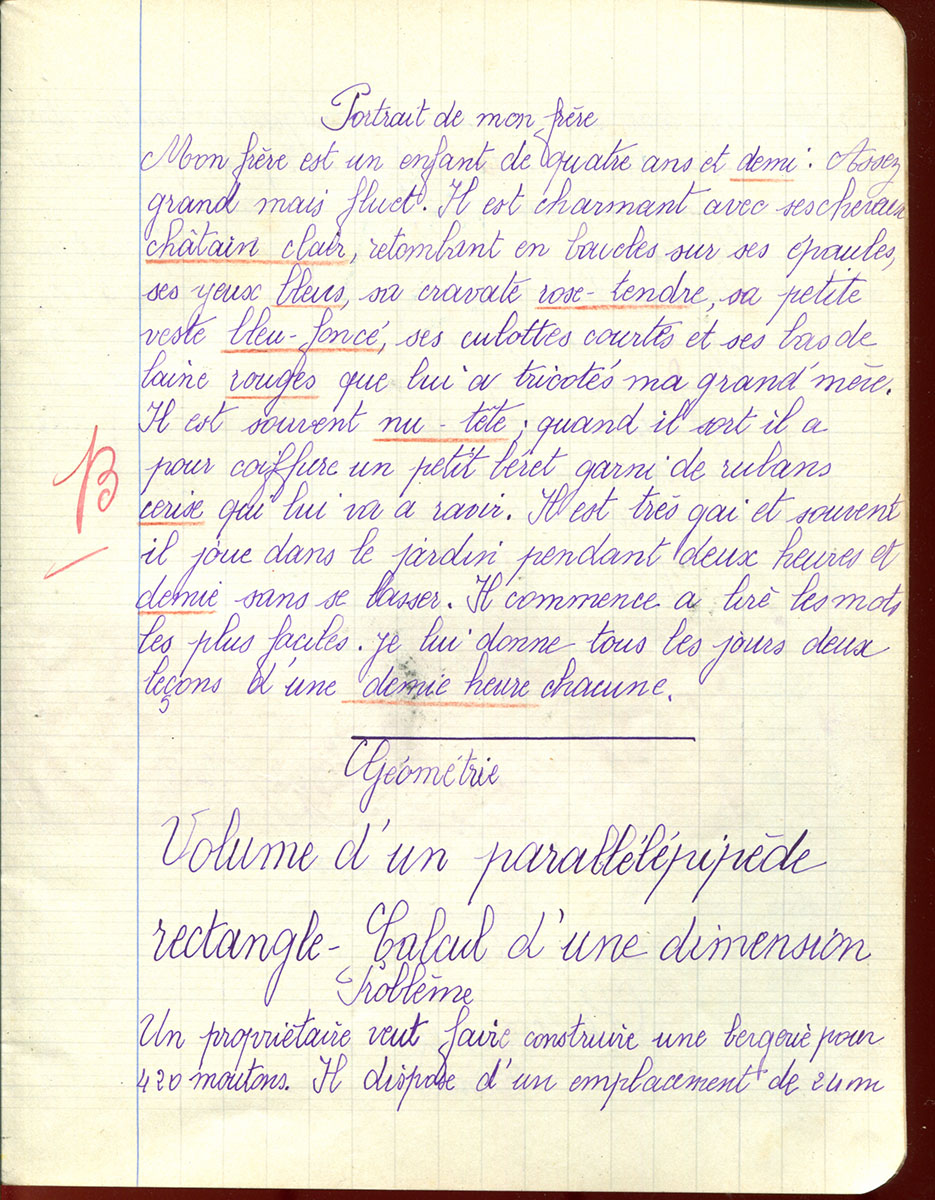 Portrait de mon frère
Mon frère est un enfant de quatre ans et demi : Assez
grand mais fluet. Il est charmant avec ses cheveux
châtain clair, retombant en boucles sur ses épaules,
ses yeux bleus, sa cravate rose-tendre, sa petite
veste bleu-foncé, ses culottes courtes et ses bas de
laine rouges que lui a tricotés ma grand'mère.
Il est souvent nu-tête ; quand il sort il a
pour coiffure un petit béret garni de rubans
cerise qui lui va a ravir. Il est très gai et souvent
il joue dans le jardin pendant deux heures et
demie sans se lasser. Il commence a lire les mots
les plus faciles. je lui donne tous les jours deux
leçons d'une demie heure chacune.
B
Géométrie
Volume d'un parallélépipède
rectangle - Calcul d'une dimension
Problème
Un propriétaire veut faire construire une bergerie pour
420 moutons. Il dispose d'un emplacement de 24m